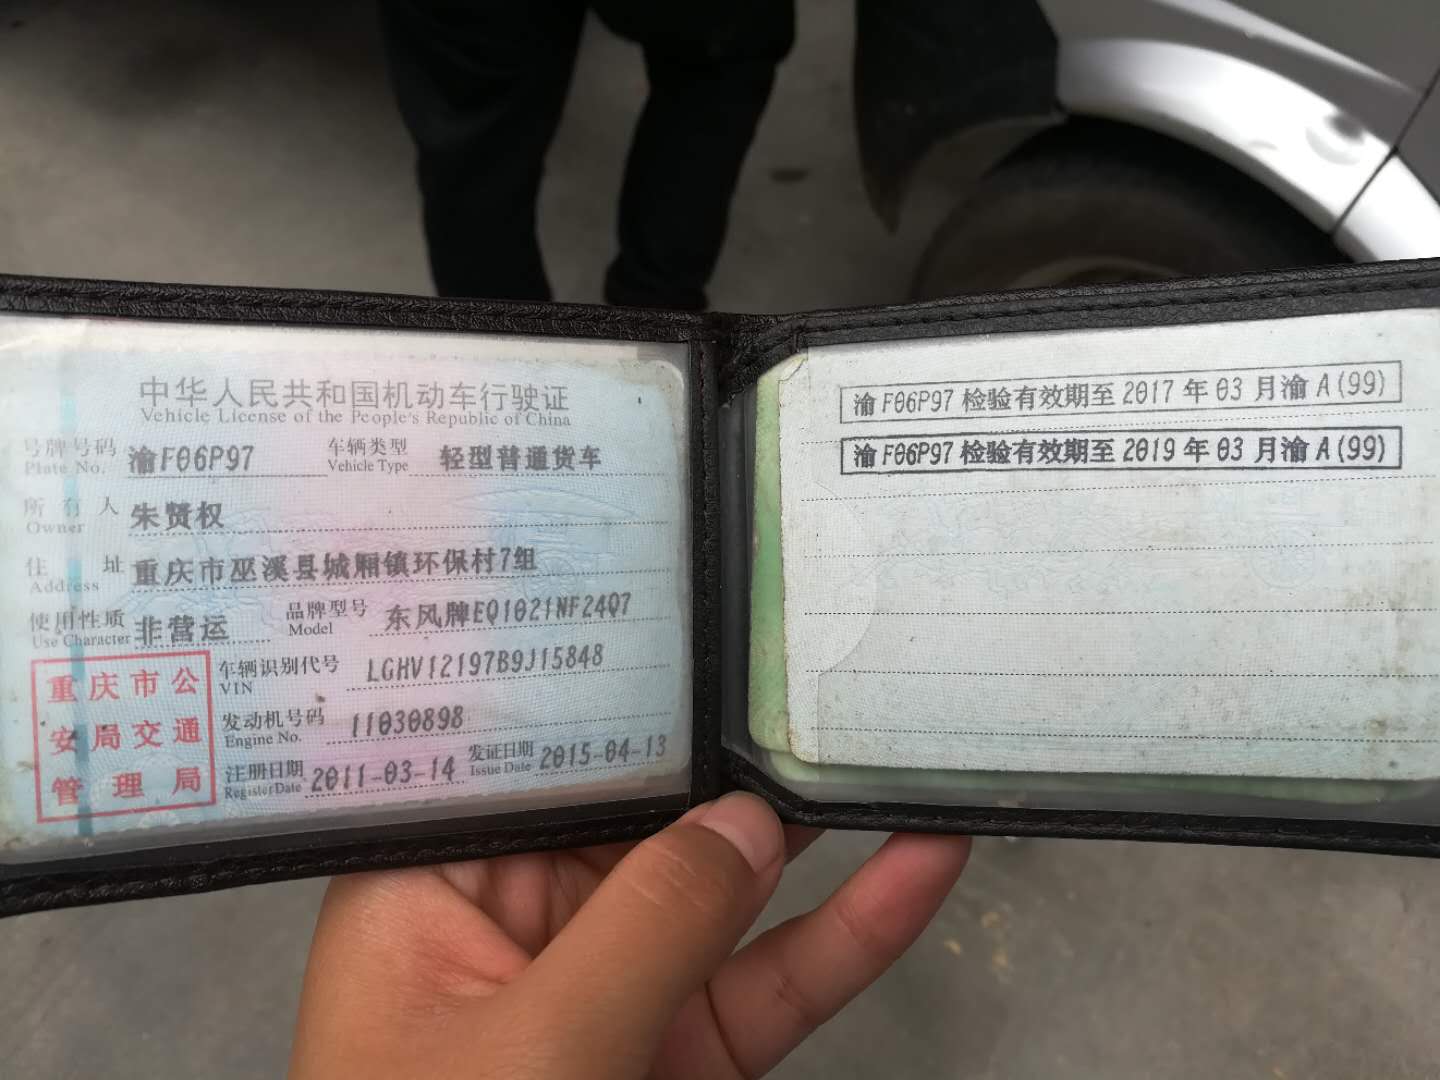 中华人民共和国机动车行驶证
Vehicle License of the People's Republic of China
号牌号码 渝F06P97 车辆类型 轻型普通货车
Plate No. Vehicle Type
所有人 朱贤权
Owner
住址 重庆市巫溪县城厢镇环保村7组
Address
使用性质 非营运 品牌型号 东风牌EQ1021NF24Q7
Use Character Model
车辆识别代号 LGHV12197B9J15848
VIN
发动机号码 11030898
Engine No.
注册日期 2011-03-14 发证日期 2015-04-13
Register Date Issue Date
重庆市公
安局交通
管理局
渝F06P97检验有效期至2017年03月渝A(99)
渝F06P97检验有效期至2019年03月渝A(99)